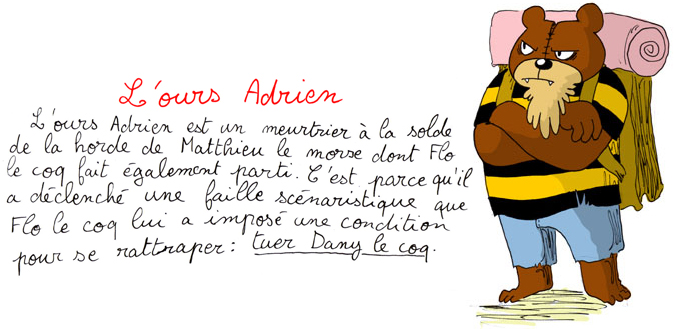 L'ours Adrien
L'ours Adrien est un meurtrier à la solde
de la horde de Matthieu le morse dont Flo
le coq fait également parti. C'est parce qu'il
a déclenché une faille scénaristique que
Flo le coq lui a imposé une condition
pour se rattraper : tuer Dany le coq.